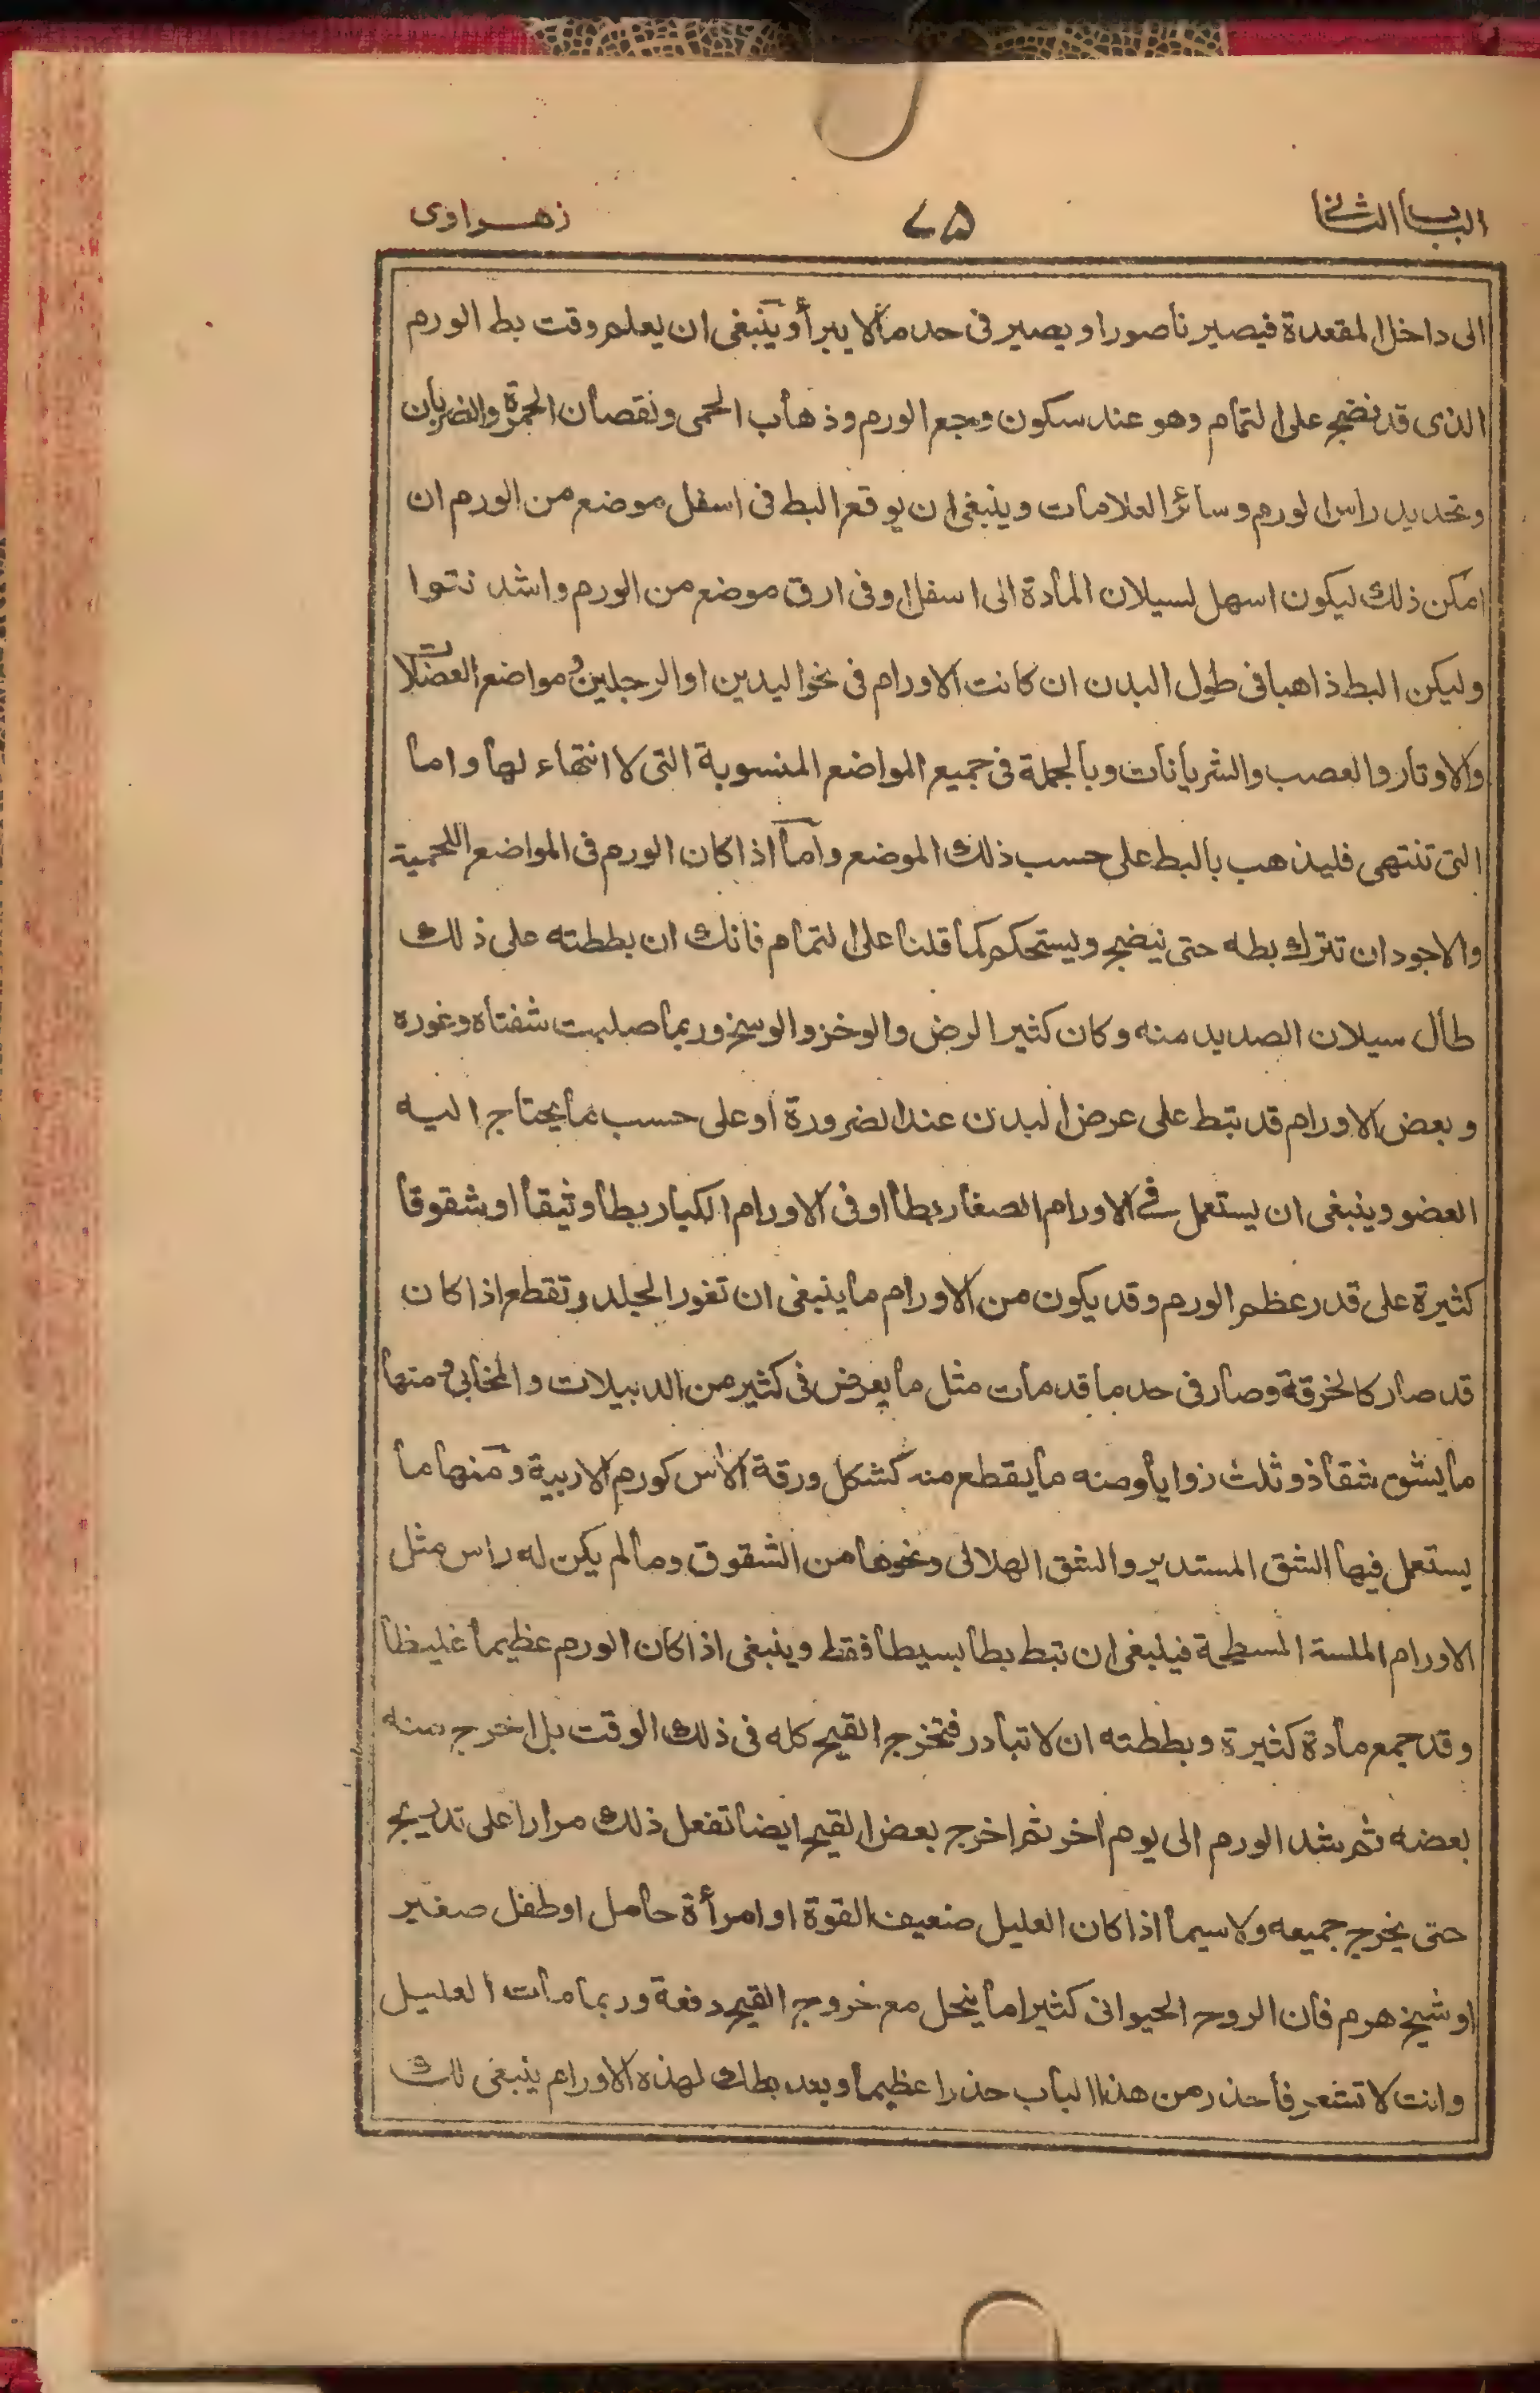 الباب الثانی
٧٥
زهراوی
الی داخل المقعدة فیصیر ناصورا ویصیر فی حد ما لا یبرأ وینبغی ان یعلم وقت بط الورم
الذی قد نضج علی التمام وهو عند سکون وجع الورم وذهاب الحمی ونقصان الحمرة والضربان
وتحدید راس الورم وسائر العلامات وینبغی ان یوقع البط فی اسفل موضع من الورم ان
امکن ذلك لیکون اسهل لسیلان المادة الی اسفل او فی ارق موضع من الورم واشد نتوا
ولیکن البط ذاهبا فی طول البدن ان کانت الاورام فی نحو الیدین او الرجلین و مواضع العضلات
والاوتار والعصب والشریانات وبالجملة فی جمیع المواضع المنسوبة التی لا انتهاء لها واما
التی تنتهی فلیذهب بالبط علی حسب ذلك الموضع واما اذا کان الورم فی المواضع اللحمیة
والاجود ان تترك بطه حتی نیضج ویستحکم کما قلنا علی التمام فانك ان بططته علی ذلك
طال سیلان الصدید منه وکان کثیر الرض والوخز والوسخ وربما صلبت شفتاه وغوره
وبعض الاورام قد تبط علی عرض البدن عند الضرورة او علی حسب ما یحتاج الیه
العضو وینبغی ان یستعمل فی الاورام الصغار بطا او فی الاورام الکبار بطا وثیقا او شقوقا
کثیرة علی قدر عظم الورم وقد یکون من الاورام ما ینبغی ان تغور الجلد وتقطع اذا کان
قد صار کالخرقة وصار فی حد ما قد مات مثل ما یعرض فی کثیر من الدبیلات والمخابی و منها
ما یشق شقا ذو ثلث زوایا ومنه ما یقطع منه کشکل ورقة الآس کورم الاربیة ومنها ما
یستعمل فیها الشق المستدیر والشق الهلالی ونحوها من الشقوق وما لم یکن له راس مثل
الاورام الملسة المسطحة فینبغی ان تبط بطا بسیطا فقط وینبغی اذا کان الورم عظیما غلیظا
وقد جمع مادة کثیرة وبططته ان لا تبادر فتخرج القیح کله فی ذلك الوقت بل اخرج منه
بعضه ثم شد الورم الی یوم اخر ثم اخرج بعض القیح ایضا تفعل ذلك مرارا علی تدریج
حتی یخرج جمیعه ولاسیما اذا کان العلیل ضعیف القوة او امرأة حامل او طفل صغیر
او شیخ هرم فان الروح الحیوانی کثیرا ما ینحل مع خروج القیح دفعة وربما مات العلیل
وانت لا تشعر فاحذر من هذا الباب حذرا عظیما وبعد بطك لهذه الاورام ینبغی لك